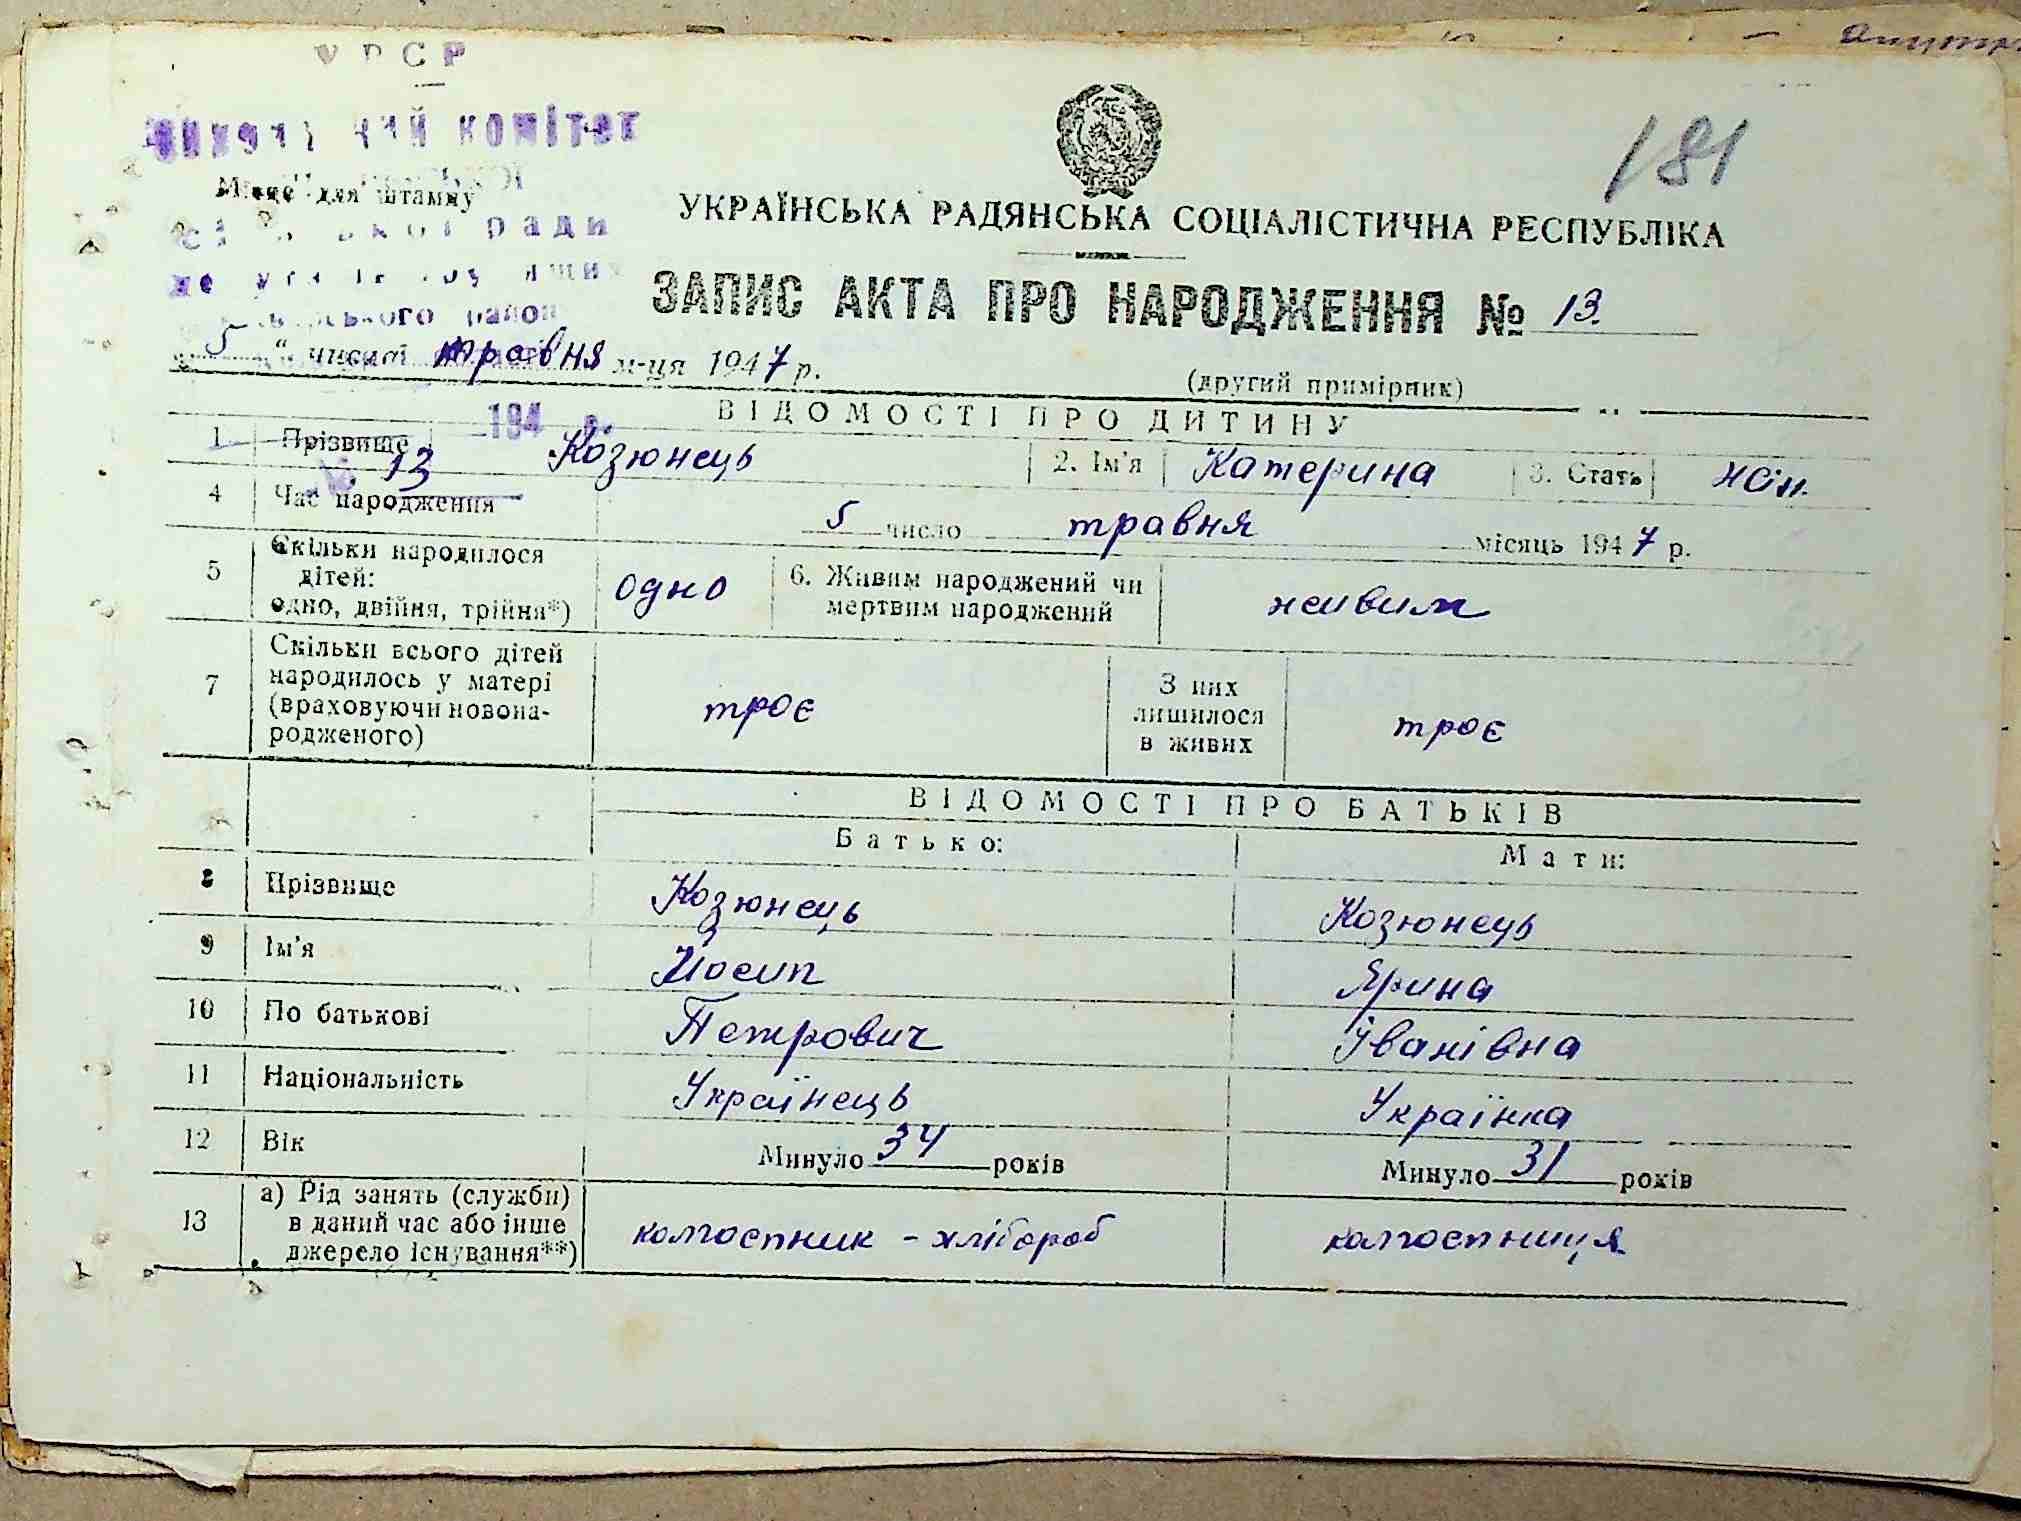 УРСР
комітет
181
Місце для штампу
УКРАЇНСЬКА РАДЯНСЬКА СОЦІАЛІСТИЧНА РЕСПУБЛІКА
ради
ЗАПИС АКТА ПРО НАРОДЖЕННЯ № 13.
району
5 " числа травня м-ця 1947 р.
(другий примірник)
194 р.
ВІДОМОСТІ ПРО ДИТИНУ
1 Прізвище Козюнець 2. Ім'я Катерина 3. Стать жін.
№ 13
4 Час народження 5 число травня місяць 1947 р.
5 Скільки народилося дітей: одно, двійня, трійня*) одно 6. Живим народжений чи мертвим народжений живим
7 Скільки всього дітей народилось у матері (враховуючи новона-родженого) троє З них лишилося в живих троє
ВІДОМОСТІ ПРО БАТЬКІВ
Батько: Мати:
8 Прізвище Козюнець Козюнець
9 Ім'я Йосип Ярина
10 По батькові Петрович Іванівна
11 Національність Українець Українка
12 Вік Минуло 34 років Минуло 31 років
13 а) Рід занять (служби) в даний час або інше джерело існування**) колгоспник - хлібороб колгоспниця